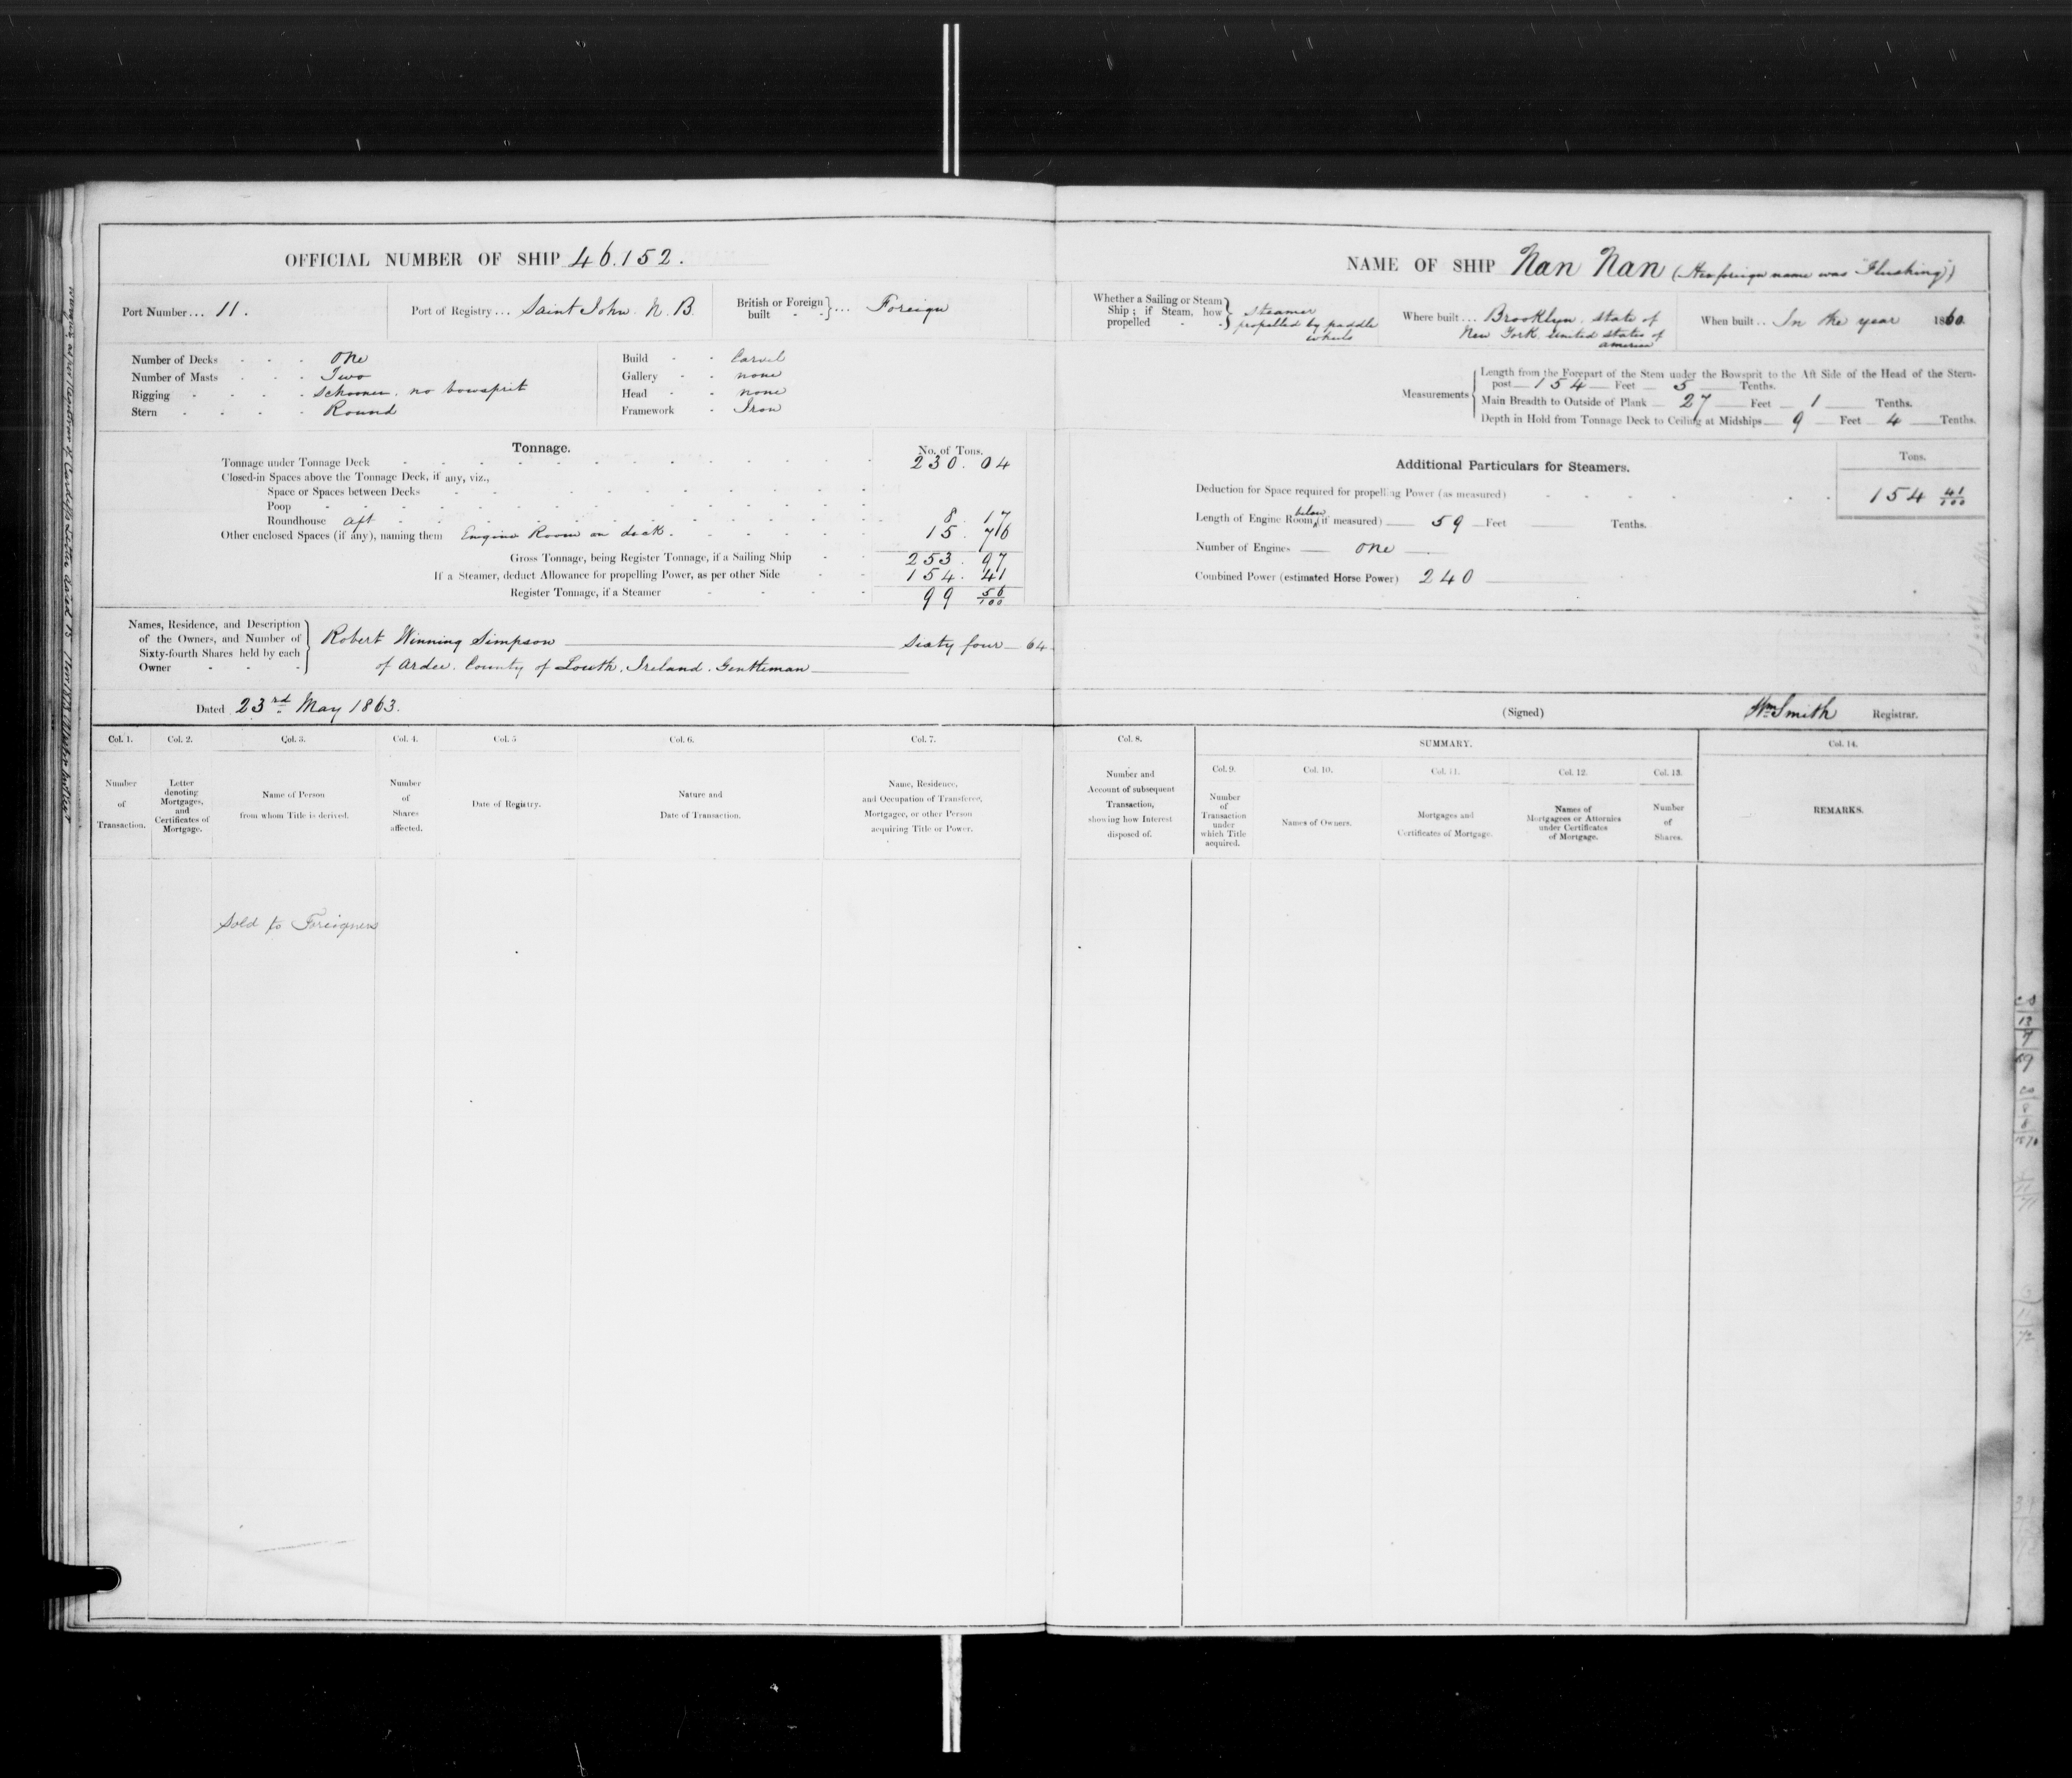 OFFICIAL NUMBER OF SHIP 46.152.
Port Number ... 11.
Port of Registry ... Saint John. N. B.
British or Foreign built } ... Foreign
Number of Decks - - - One
Number of Masts - - - Two
Rigging - - - - Schooner, no bowsprit
Stern - - - - Round
Build - - Carvel
Gallery - - none
Head - - none
Framework - Iron
Tonnage.
No. of Tons.
Tonnage under Tonnage Deck 230. 04
Closed-in Spaces above the Tonnage Deck, if any, viz.,
Space or Spaces between Decks
Poop
Roundhouse aft 8. 17
Other enclosed Spaces (if any), naming them Engine Room on deck. 15. 76
Gross Tonnage, being Register Tonnage, if a Sailing Ship 253. 97
If a Steamer, deduct Allowance for propelling Power, as per other Side 154. 41
Register Tonnage, if a Steamer 99 56/100
Names, Residence, and Description of the Owners, and Number of Sixty-fourth Shares held by each Owner
Robert Winning Simpson Sixty four 64
of Ardee. County of Louth, Ireland. Gentleman
Dated 23rd May 1863.
Col. 1.
Col. 2.
Col. 3.
Col. 4.
Col. 5
Col. 6.
Col. 7.
Number of Transaction.
Letter denoting Mortgages, and Certificates of Mortgage.
Name of Person from whom Title is derived.
Number of Shares affected.
Date of Registry.
Nature and Date of Transaction.
Name, Residence, and Occupation of Transferee, Mortgagee, or other Person acquiring Title or Power.
Sold to Foreigners
NAME OF SHIP Nan Nan (Her foreign name was "Flushing")
Whether a Sailing or Steam Ship; if Steam, how propelled } Steamer propelled by paddle wheels
Where built ... Brooklyn, State of New York, United States of America
When built .. In the year 1860.
Measurements
Length from the Forepart of the Stem under the Bowsprit to the Aft Side of the Head of the Stern-
post 154 Feet 5 Tenths.
Main Breadth to Outside of Plank 27 Feet 1 Tenths.
Depth in Hold from Tonnage Deck to Ceiling at Midships 9 Feet 4 Tenths.
Additional Particulars for Steamers.
Tons.
Deduction for Space required for propelling Power (as measured) 154 41/100
Length of Engine Room below (if measured) 59 Feet Tenths.
Number of Engines One
Combined Power (estimated Horse Power) 240
(Signed) Wm Smith Registrar.
Col. 8.
SUMMARY.
Col. 14.
Col. 9.
Col. 10.
Col. 11.
Col. 12.
Col. 13.
Number and Account of subsequent Transaction, showing how Interest disposed of.
Number of Transaction under which Title acquired.
Names of Owners.
Mortgages and Certificates of Mortgage.
Names of Mortgagees or Attornies under Certificates of Mortgage.
Number of Shares.
REMARKS.